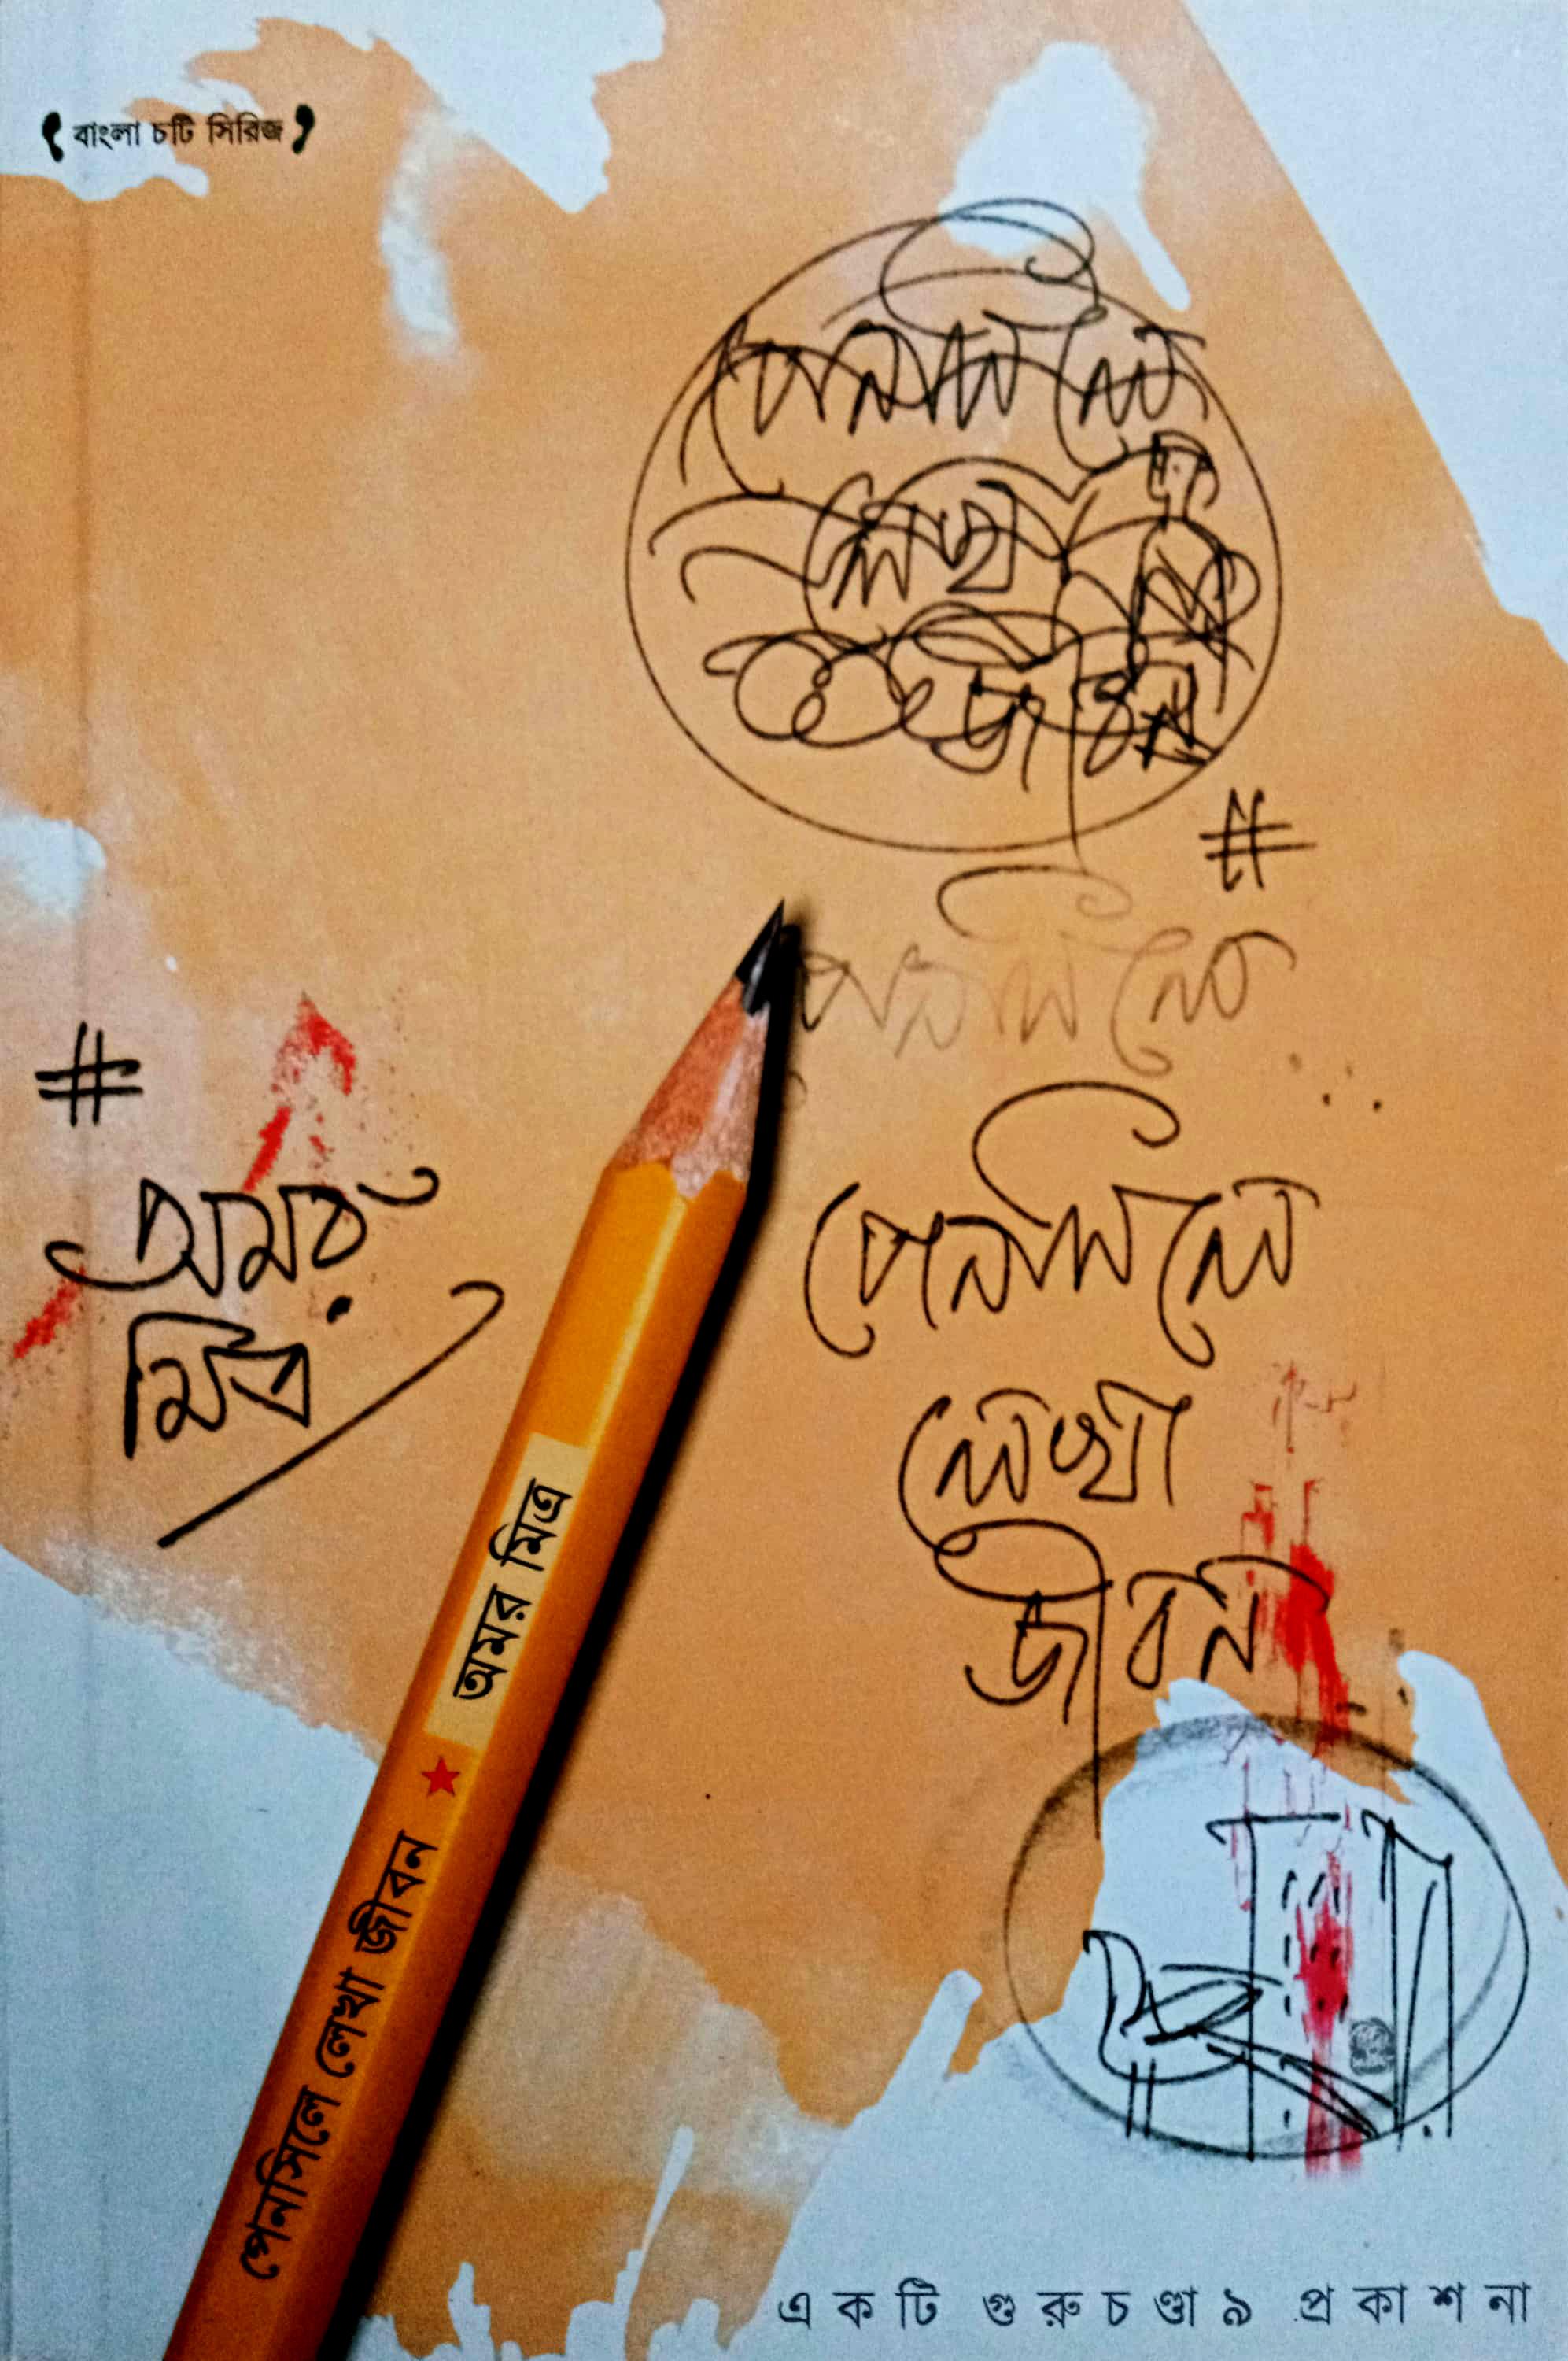 বাংলা চটি সিরিজ
পেনসিলে
লেখা
জীবন
#
পেনসিলে
#
অমর
মিত্র
পেনসিলে
লেখা
জীবন
পেনসিলে লেখা জীবন ★ অমর মিত্র
একটি গুরুচণ্ডা৯ প্রকাশনা